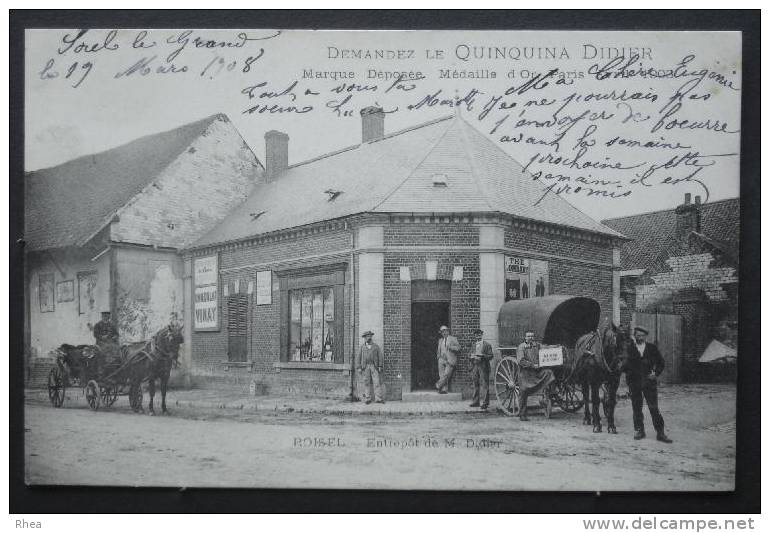 Sorel le Grand
le 19 Mars 1908
DEMANDEZ LE QUINQUINA DIDIER
Marque Déposée Médaille d'Or Paris
Tout à vous ta
soeur
Chère Eugénie
Je ne pourrais pas
t'envoyer de beurre
avant la semaine
prochaine
semaine il est
promis
CHOCOLAT
VINAY
THE
ROISEL - Entrepôt de M. Didier
Rhea
delcampe.net